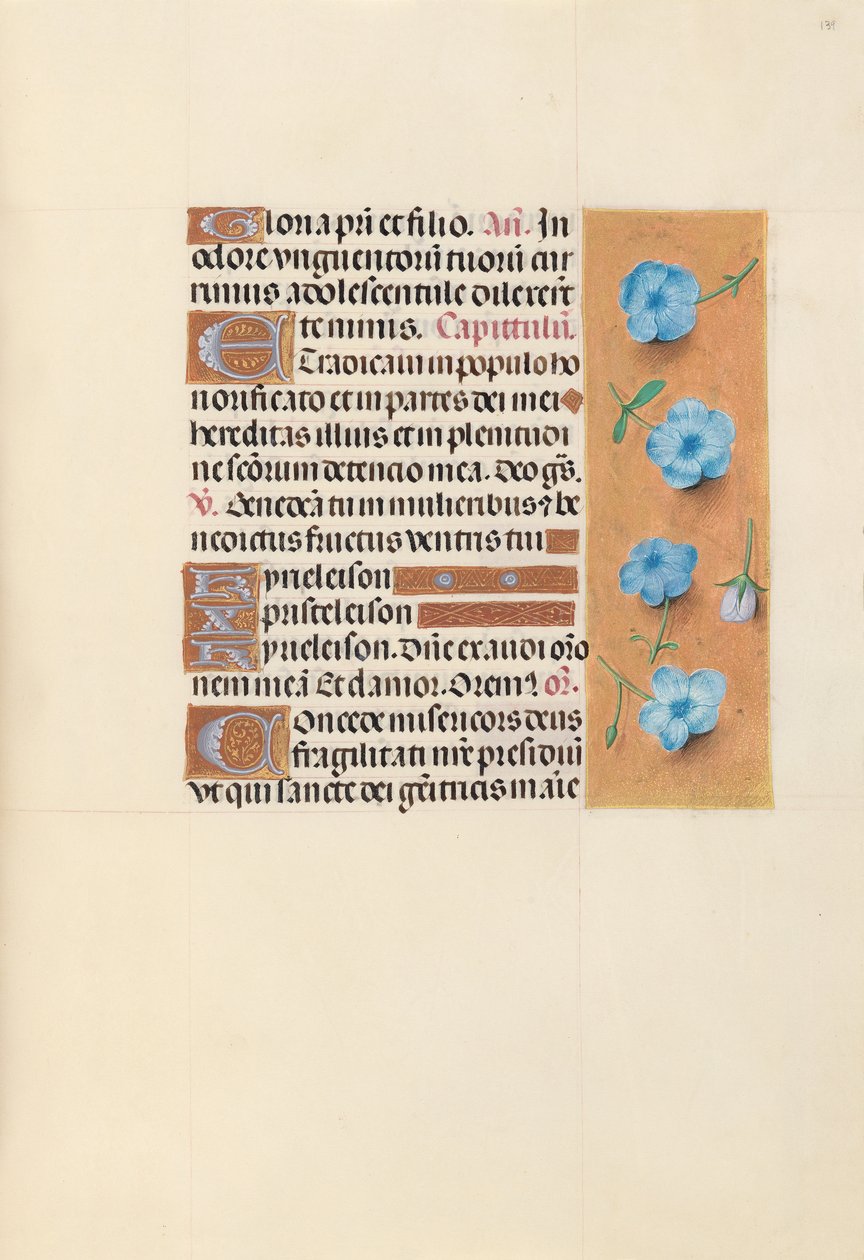 139
Gloria pr̄i et filio. An̄. In
odore vnguentorū tuorū cur
rimus adolescentule dilexerūt
te nimis. Capittulū.
Et radicaui in populo ho
norificato et in partes dei mei
hereditas illius et in plenitudi
ne scōrum detencio mea. Deo gr̄s.
V̄. Benedcā tu in mulieribus ⁊ be
nedictus fructus ventris tui
Kyrieleison
Xpristeleison
Kyrieleison. Dn̄e exaudi orō
nem meā Et clamor. Oremꝰ or̄.
Concede misericors deus
fragilitati nr̄e presidiū
vt qui sancte dei gēitricis marie